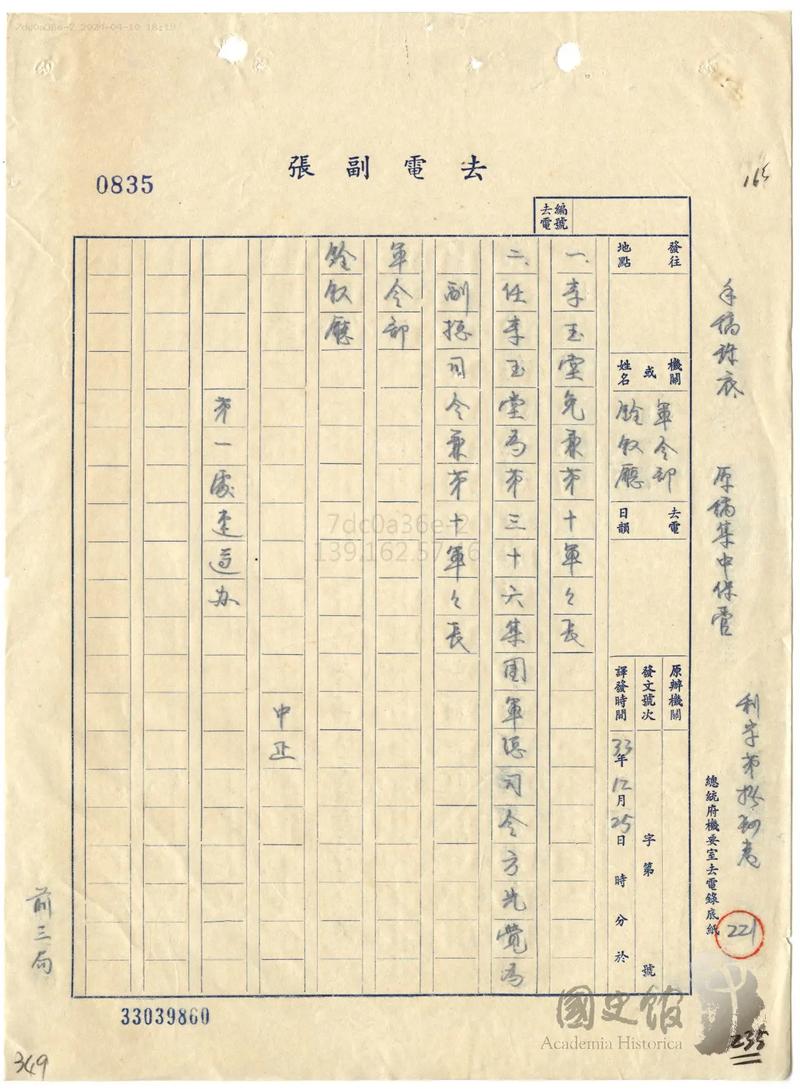 7dc0a36e-2 2024-04-10 18:19
去電副張
0835
165
去電編號
發往地點
機關或姓名
軍令部
銓敘廳
去電日韻
原辦機關
發文號次 字第 號
譯發時間 33年12月25日 時 分於
一、李玉堂免兼第十軍々長
二、任李玉堂為第三十六集團軍總司令方先覺為
副總司令兼第十軍々長
軍令部
銓敘廳
中正
第一處速遵办
手稿錄底 原稿集中保管
利字第
總統府機要室去電錄底紙
221
前三局
7dc0a36e-2
139.162.57
33039860
349
國史館
Academia Historica
235